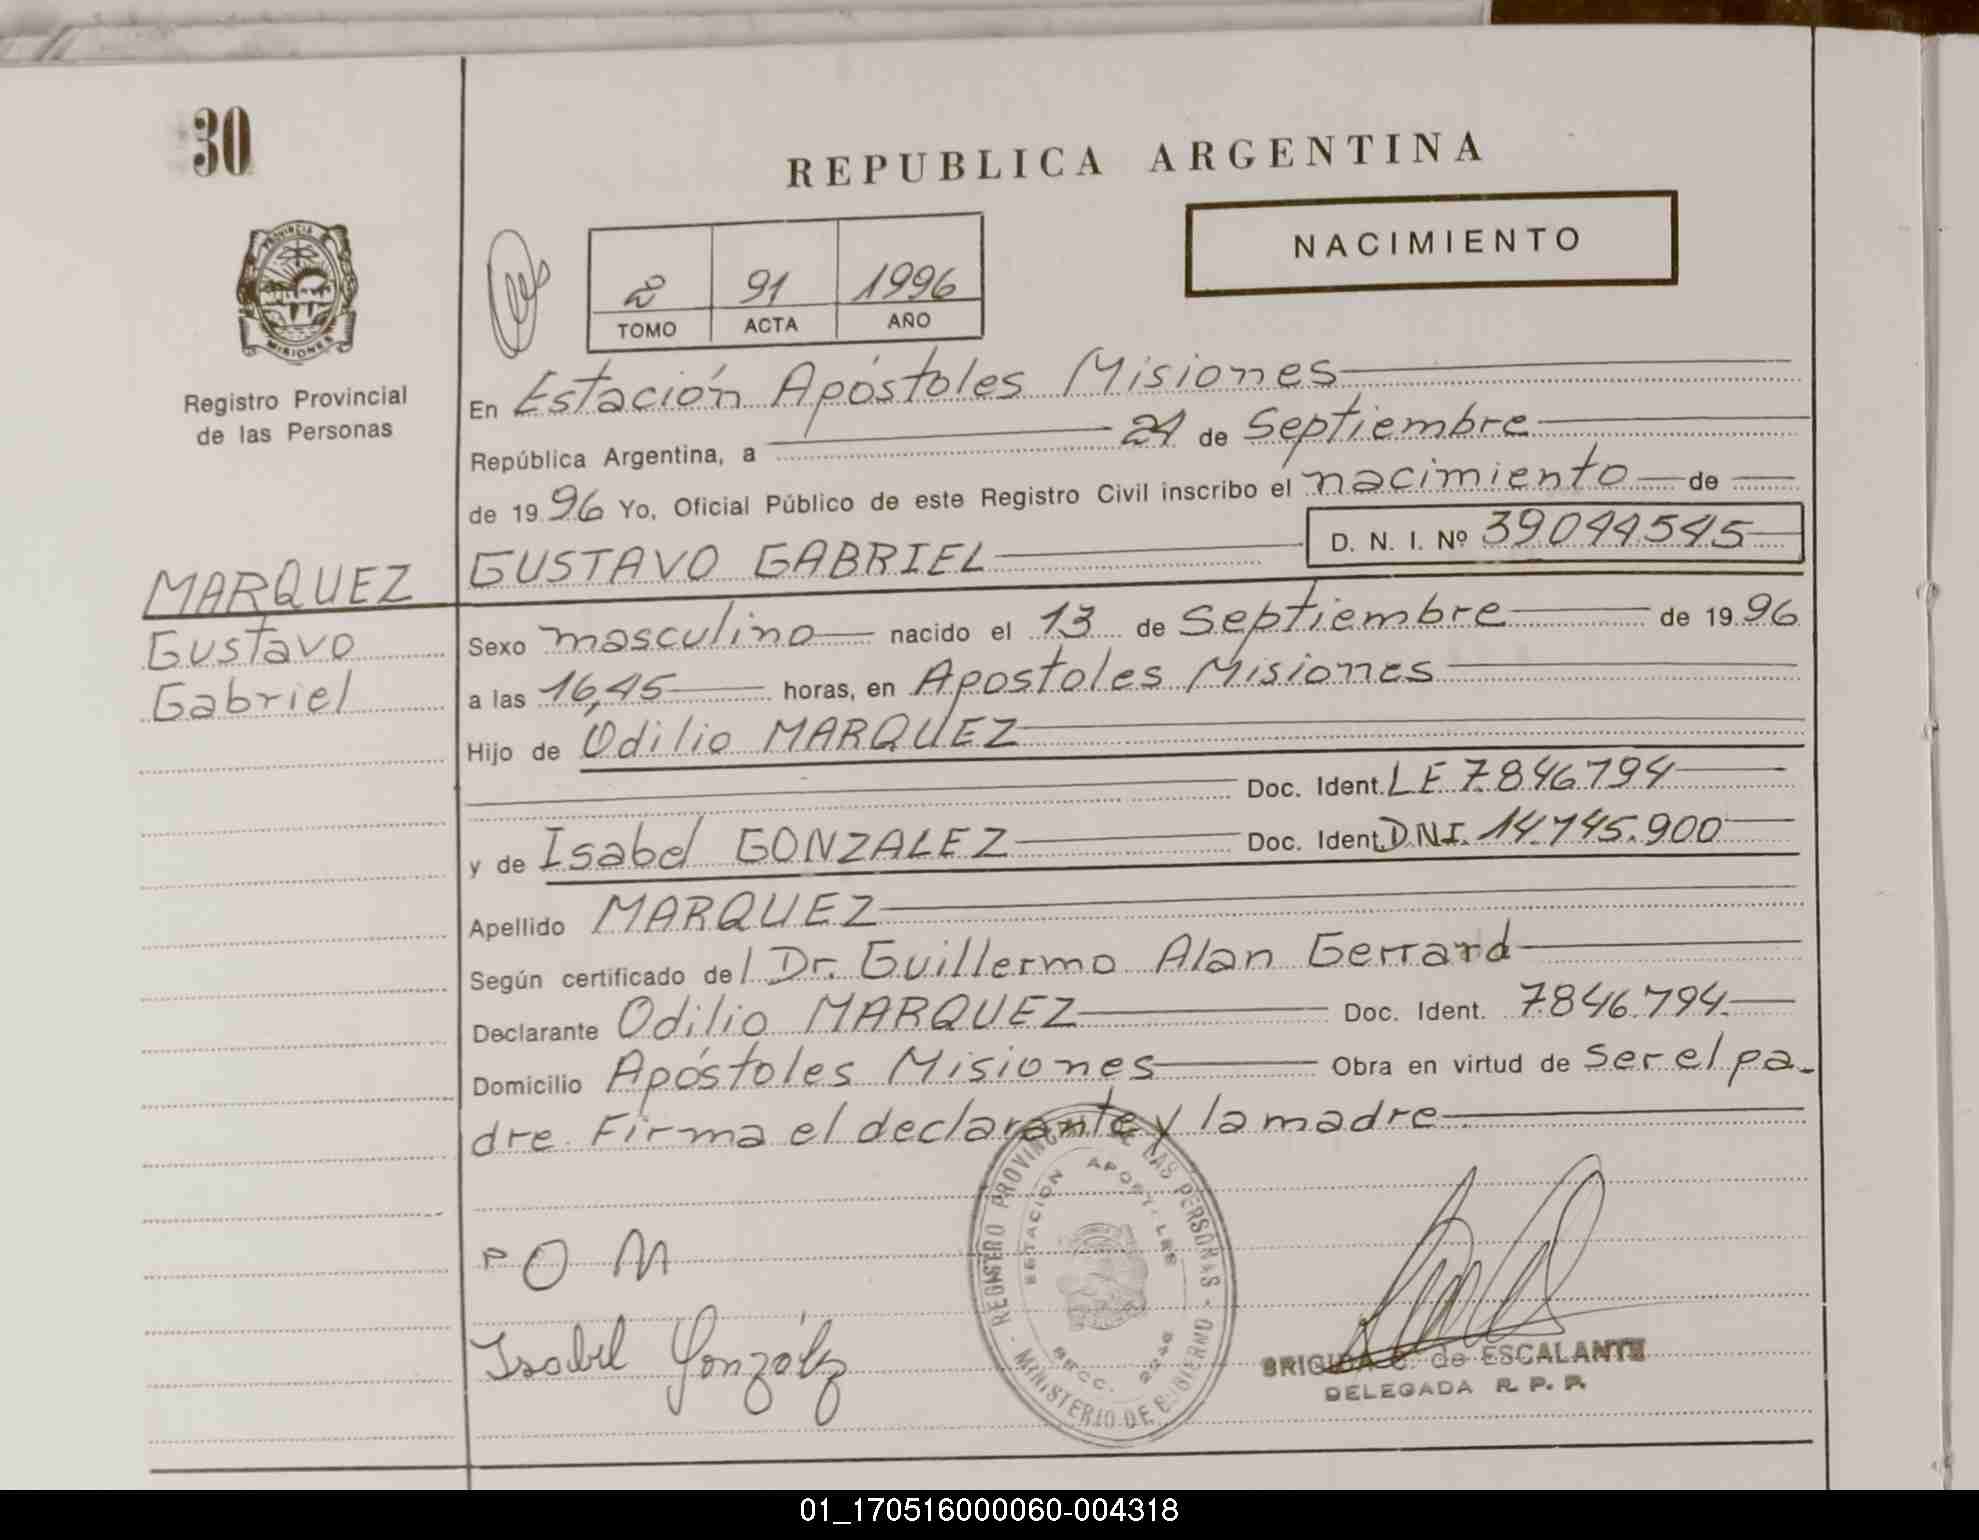 30
REPUBLICA ARGENTINA
NACIMIENTO
PROVINCIA
MISIONES
Registro Provincial
de las Personas
2 91 1996
TOMO ACTA AÑO
En Estación Apóstoles Misiones
República Argentina, a 24 de Septiembre
de 1996 Yo, Oficial Público de este Registro Civil inscribo el nacimiento de
GUSTAVO GABRIEL D. N. I. Nº 39044545
MARQUEZ
Gustavo
Gabriel
Sexo masculino nacido el 13 de Septiembre de 1996
a las 16,45 horas, en Apostoles Misiones
Hijo de Odilio MARQUEZ
Doc. Ident. LE 7.846.794
y de Isabel GONZALEZ Doc. Ident. DNI. 14.745.900
Apellido MARQUEZ
Según certificado del Dr. Guillermo Alan Gerrard
Declarante Odilio MARQUEZ Doc. Ident. 7.846.794.
Domicilio Apóstoles Misiones Obra en virtud de ser el pa-
dre. Firma el declarante y la madre.
O M
Isabel Gonzalez
REGISTRO PROVINCIAL DE LAS PERSONAS - MINISTERIO DE GOBIERNO -
ESTACION APOSTOLES
SECC.
BRIGIDA C. de ESCALANTE
DELEGADA R. P. P.
01_170516000060-004318